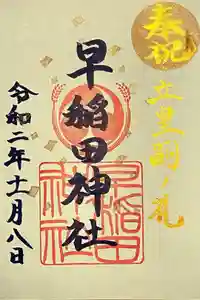 奉祝
立皇嗣ノ礼
早稲田神社
令和二年十一月八日
早稲田
神社